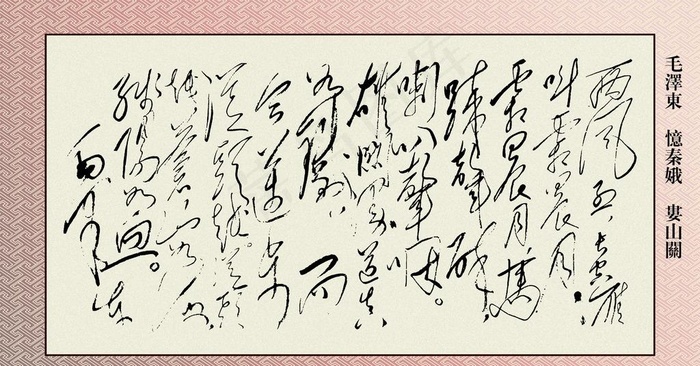 毛澤東 憶秦娥 婁山關
西風烈長空雁
叫霜晨月。
霜晨月,馬
蹄聲碎,
喇叭聲咽。
雄關漫道真
如鐵,而
今邁步
從頭越。從頭
越,蒼山如海,
殘陽如血。
毛澤東